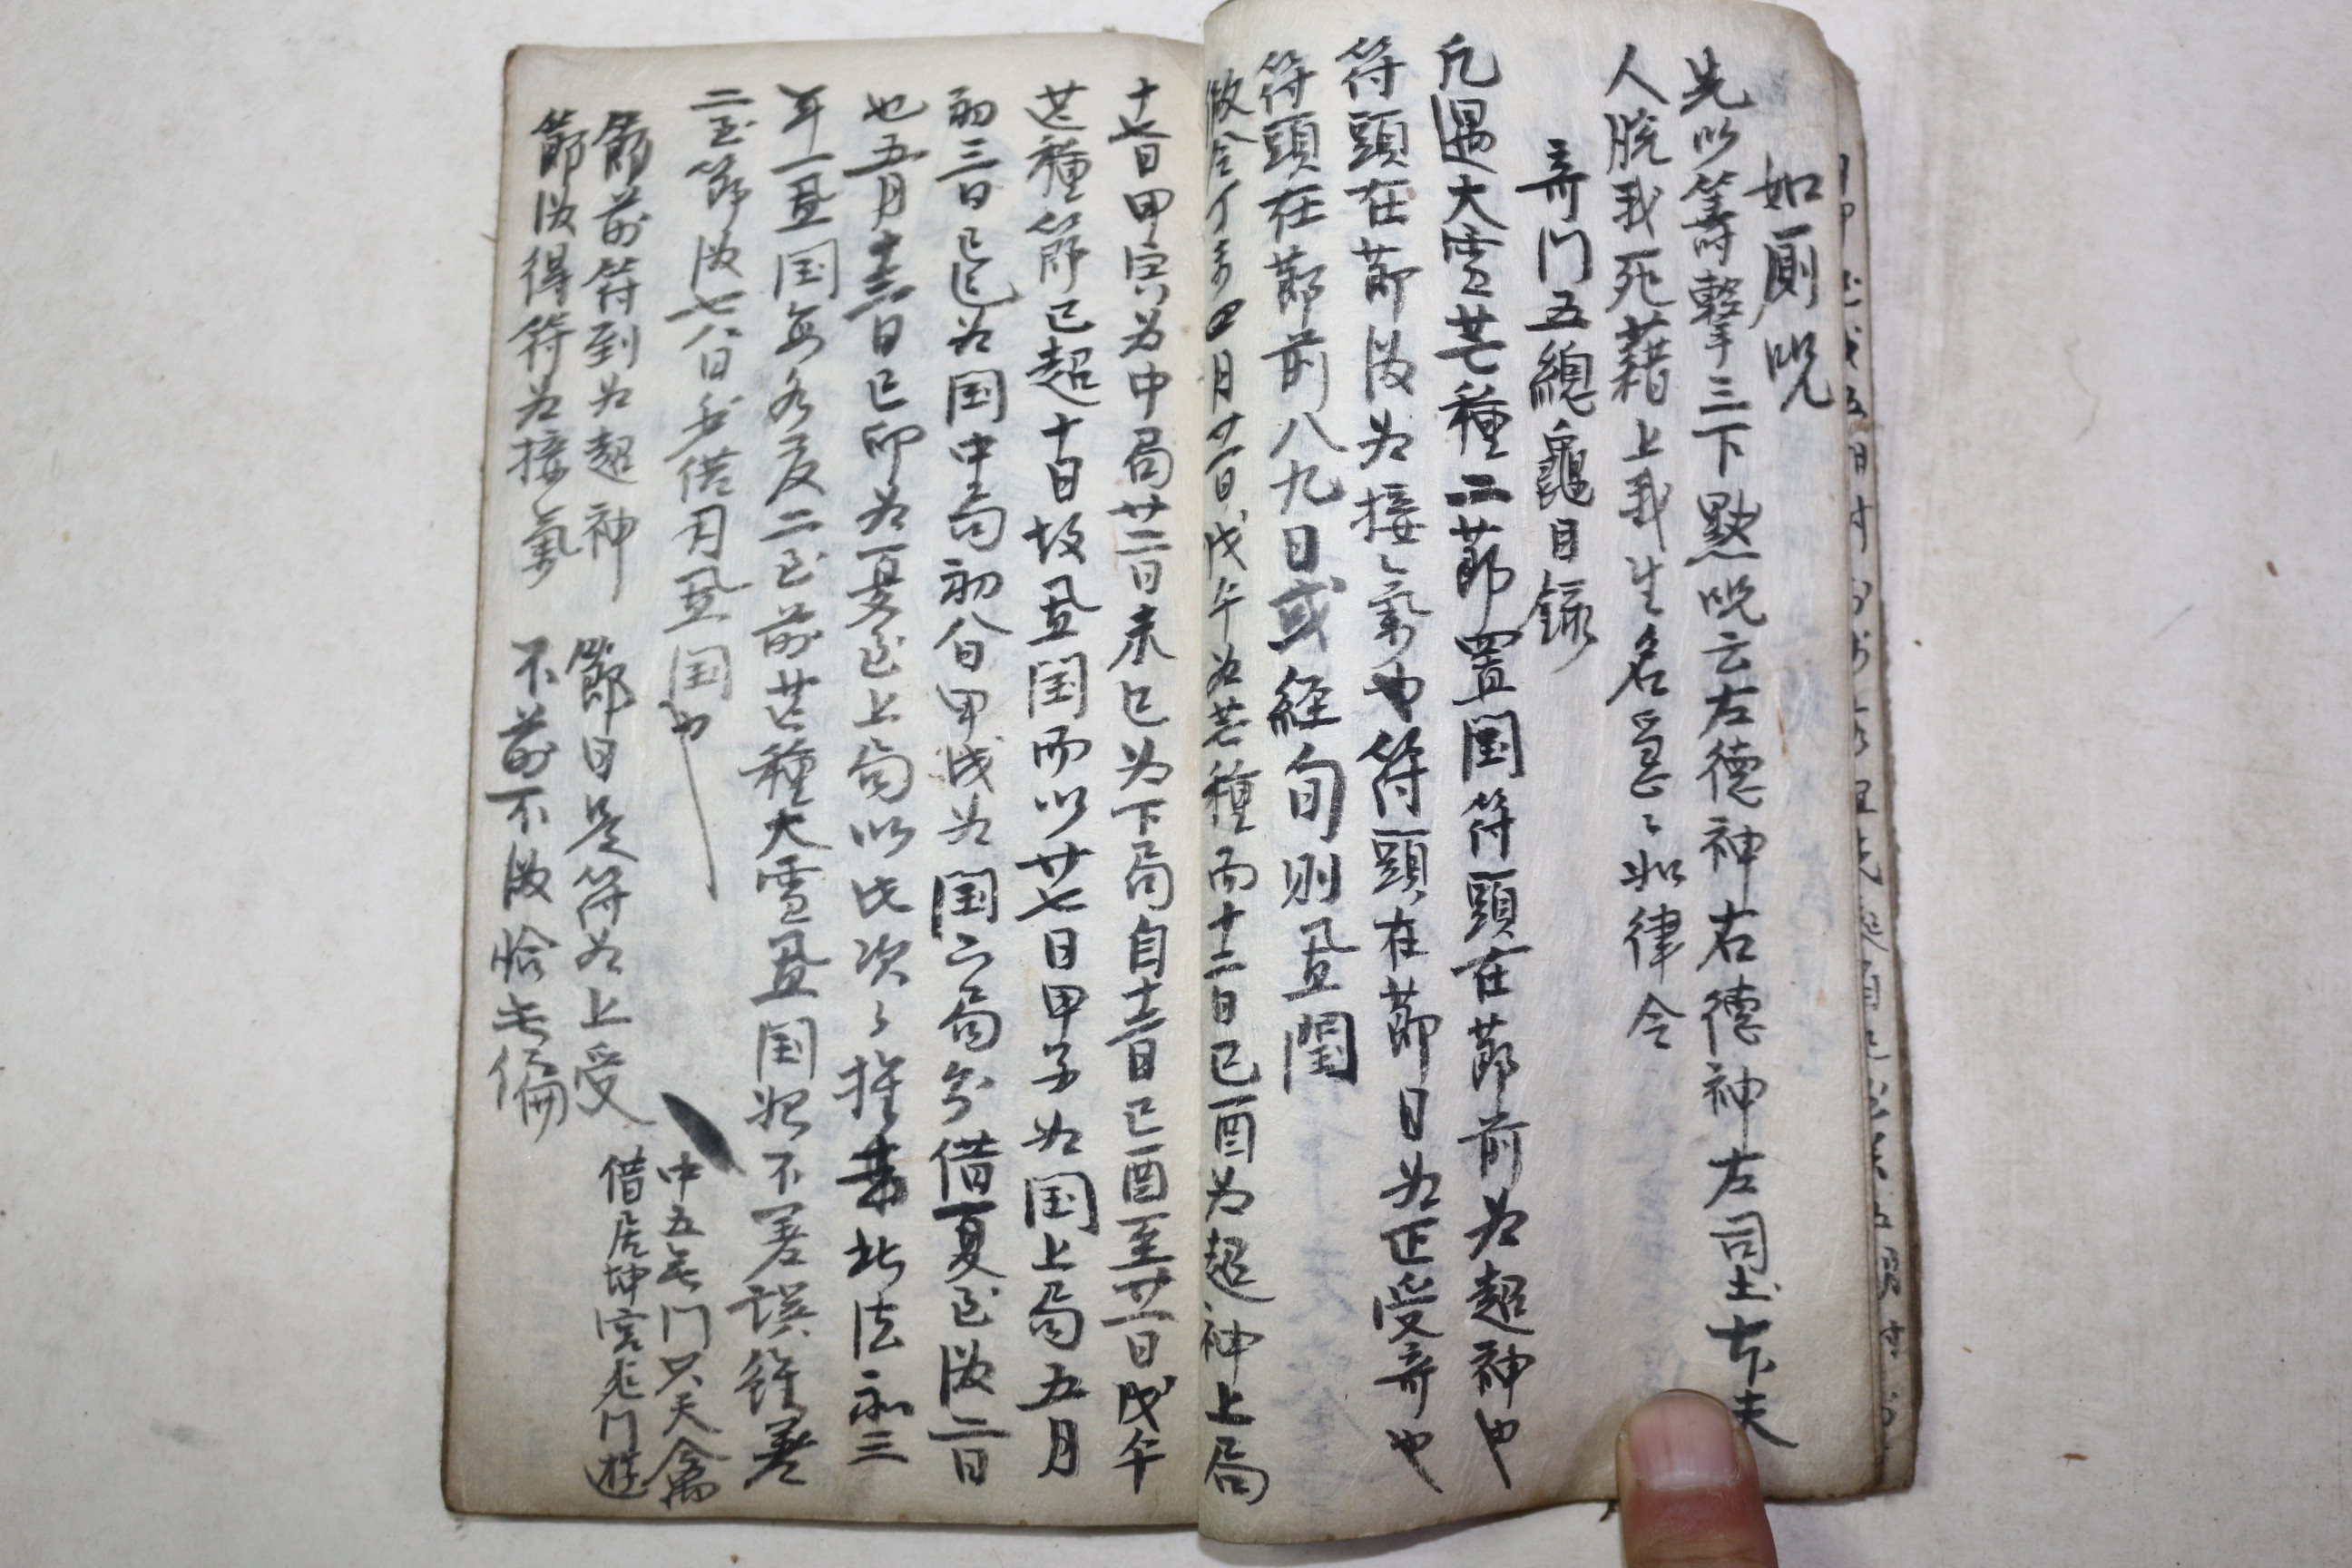 如厠呪
先以籌擊三下點呪云左德神右德神左司土
人脫我死藉上我生名急〻如律令
奇门五總龜目錄
凡遇大雪芒種二節置閏符頭在節前为超神也
符頭在節後为接〻氣也符頭在節日为正受奇也
符頭在節前八九日或経旬則置閏
做令丁未四月廿一日戊午为芒種而十二日已酉为超神上局
十七日甲寅为中局廿二日未已为下局自十二日已酉至廿一日戊午
芒種節已超十日故置閏而以廿七日甲子为国上局五月
初三日已巳为国中局初八日甲戌为閏下局分借夏至後二日
也五月十三日已卯为夏至上局以此次〻推去此法和三
年一置国每各於二至前芒種大雪置国如不差誤錐差
二至節後七八日勿借用置国也
節前符到为超神 節日是符为上受
節後得符为接氣 不前不後恰无偏
中五无门只天禽
借居坤宮死门遊